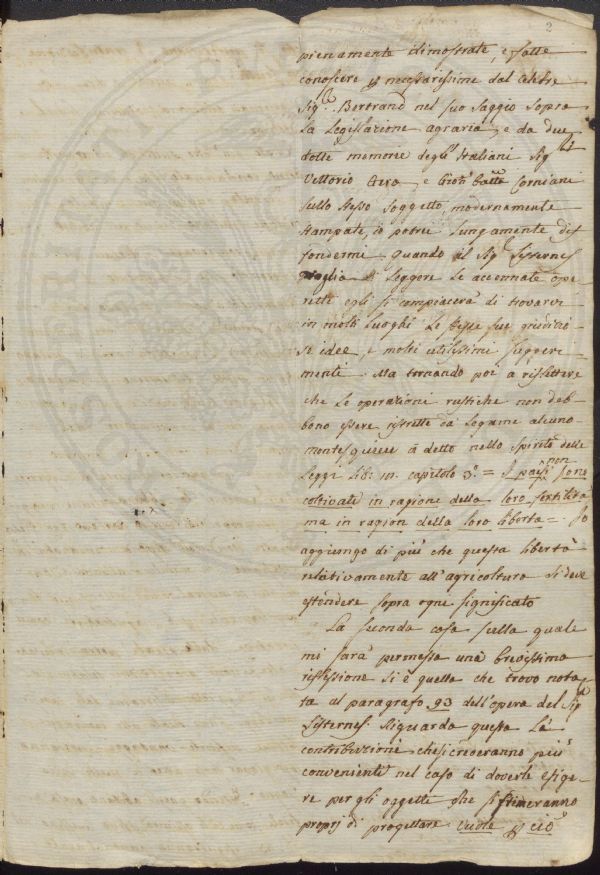 2
pienamente dimostrate, e fatte
conoscere p necessarissime dal celebre
Sig.r Bertrand nel suo saggio sopra
la legislazione agraria, e da due
dotte memorie degl'Italiani Sig.ri
Vettorio Gera e Giov. Batta Corniani
sullo stesso soggetto, modernamente
stampate, io potrei lungamente dif
fondermi quando il Sig.r Listernes
voglia leggere le accennate ope
rette egli si compiacerà di trovarvi
in molti luoghi le stesse sue giudizio
se idee, e molti utilissimi suggeri
menti. Ma tornando poi a riflettere
che le operazioni rustiche non deb
bono essere ristrette da legame alcuno
montesquieu à detto nello spirito delle
Leggi Lib: capitolo 3.° = I paesi non sono
coltivati in ragione della loro fertilità
ma in ragion della loro libertà =. Io
aggiungo di più che questa libertà
relativamente all'agricoltura si deve
estendere sopra ogni significato
La seconda cosa sulla quale
mi sarà permessa una brevissima
riflessione si è quella che trovo nota
ta al paragrafo 93 dell'opera del Sig.r
Listernes. Riguarda questa la
contribuzione che si crederanno più
conveniente nel caso di doverle esige
re per gli oggetti che si stimeranno
proprj di progettare. Vuole p ciò